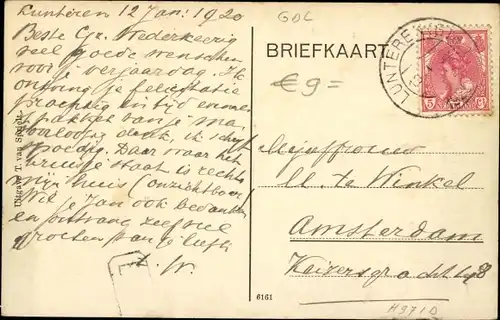 Lunteren 12 Jan: 1920
Beste Gr. Wederkeerig
veel goede wenschen
voor je verjaardag. Ik
ontving je felicitatie
prachtig en tijd en mn
pakket van je ma,
dank, ik schrijf
spoedig. Daar waar het
kruisje staat is rechts
mijn huis (onzichtbaar)
Wil je Jan ook bedanken
en ontvang zelf vele
groeten van je liefh
t. W.
Uitgave T. van
GDL
BRIEFKAART
€ 9 =
LUNTEREN
5 ct
Mejuffrouw
M. te Winkel
Amsterdam
Keizersgracht
6161
H371D